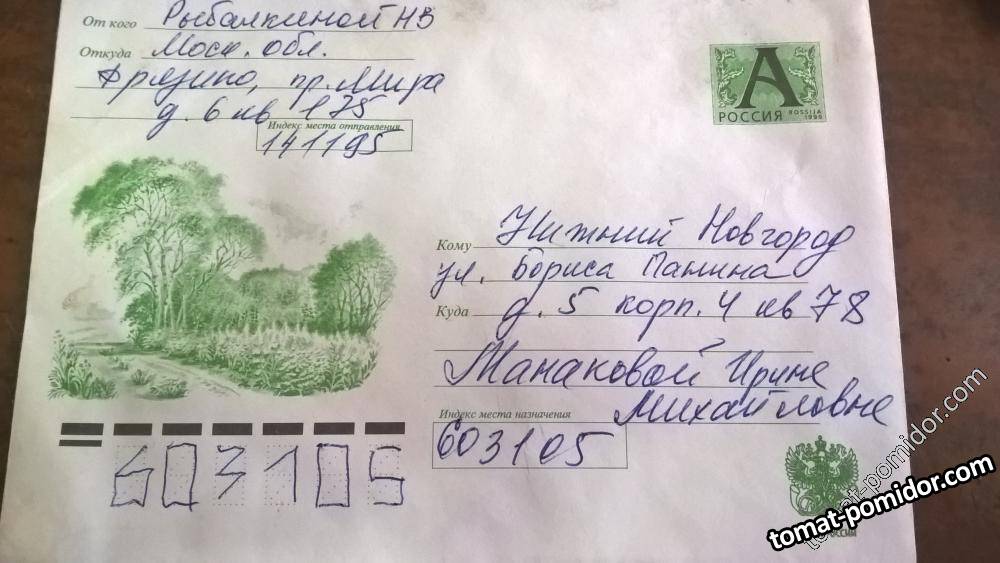 От кого Рыбалкиной НВ
Откуда Моск. обл.
Фрязино, пр. Мира
д. 6 кв 175
Индекс места отправления
141195
А
РОССИЯ ROSSIJA
Кому Нижний Новгород
ул. Бориса Панина
Куда д. 5 корп. 4 кв 78
Манаковой Ирине
Михайловне
Индекс места назначения
603105
603105
РОССИЯ
tomat-pomidor.com
tomat-pomidor.com